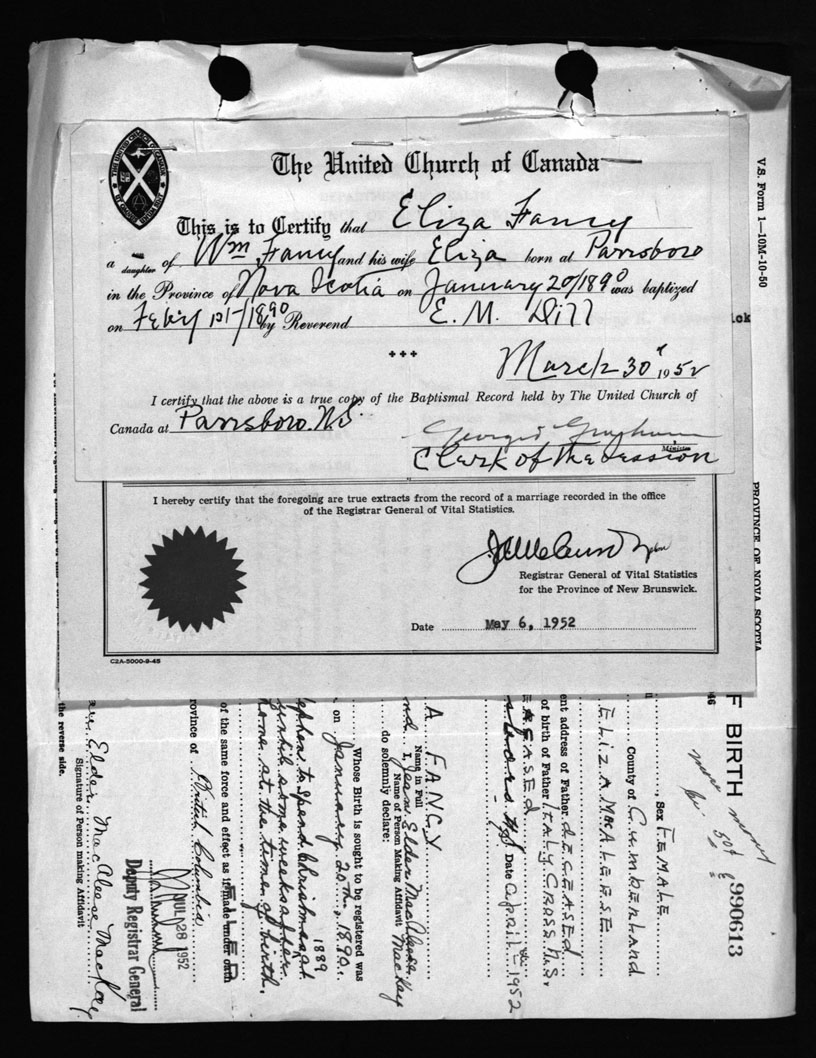 The United Church of Canada
THE UNITED CHURCH OF CANADA
UT OMNES UNUM SINT
This is to Certify that Eliza Fancy
a daughter of Wm Fancy and his wife Eliza born at Parrsboro
in the Province of Nova Scotia on January 20/1890 was baptized
on Feby 1st/1890 by Reverend E. M. Dill
March 30 1952
I certify that the above is a true copy of the Baptismal Record held by The United Church of
Canada at Parrsboro N.S.
Minister
Clerk of the Session
I hereby certify that the foregoing are true extracts from the record of a marriage recorded in the office
of the Registrar General of Vital Statistics.
Registrar General of Vital Statistics
for the Province of New Brunswick.
Date May 6, 1952
C2A-5000-9-45
V.S. Form 1—10M-10-50
PROVINCE OF NOVA SCOTIA
F BIRTH 990613
Sex FEMALE
County of Cumberland
ELIZA MacALEESE
ent address of Father DECEASED
of birth of Father ITALY CROSS N.S.
EASED
Date April 1952
A FANCY
Name in Full
I, Jean Elder MacAleese MacKay
Name of Person Making Affidavit
do solemnly declare:
Whose Birth is sought to be registered was
on January 20th, 1890.
to spend Christmas 1889 at
until some weeks after
home at the time of birth.
of the same force and effect as if made under oath
rovince of British Columbia
JUL 28 1952
Deputy Registrar General
Elder MacAleese MacKay
Signature of Person making Affidavit
the reverse side.